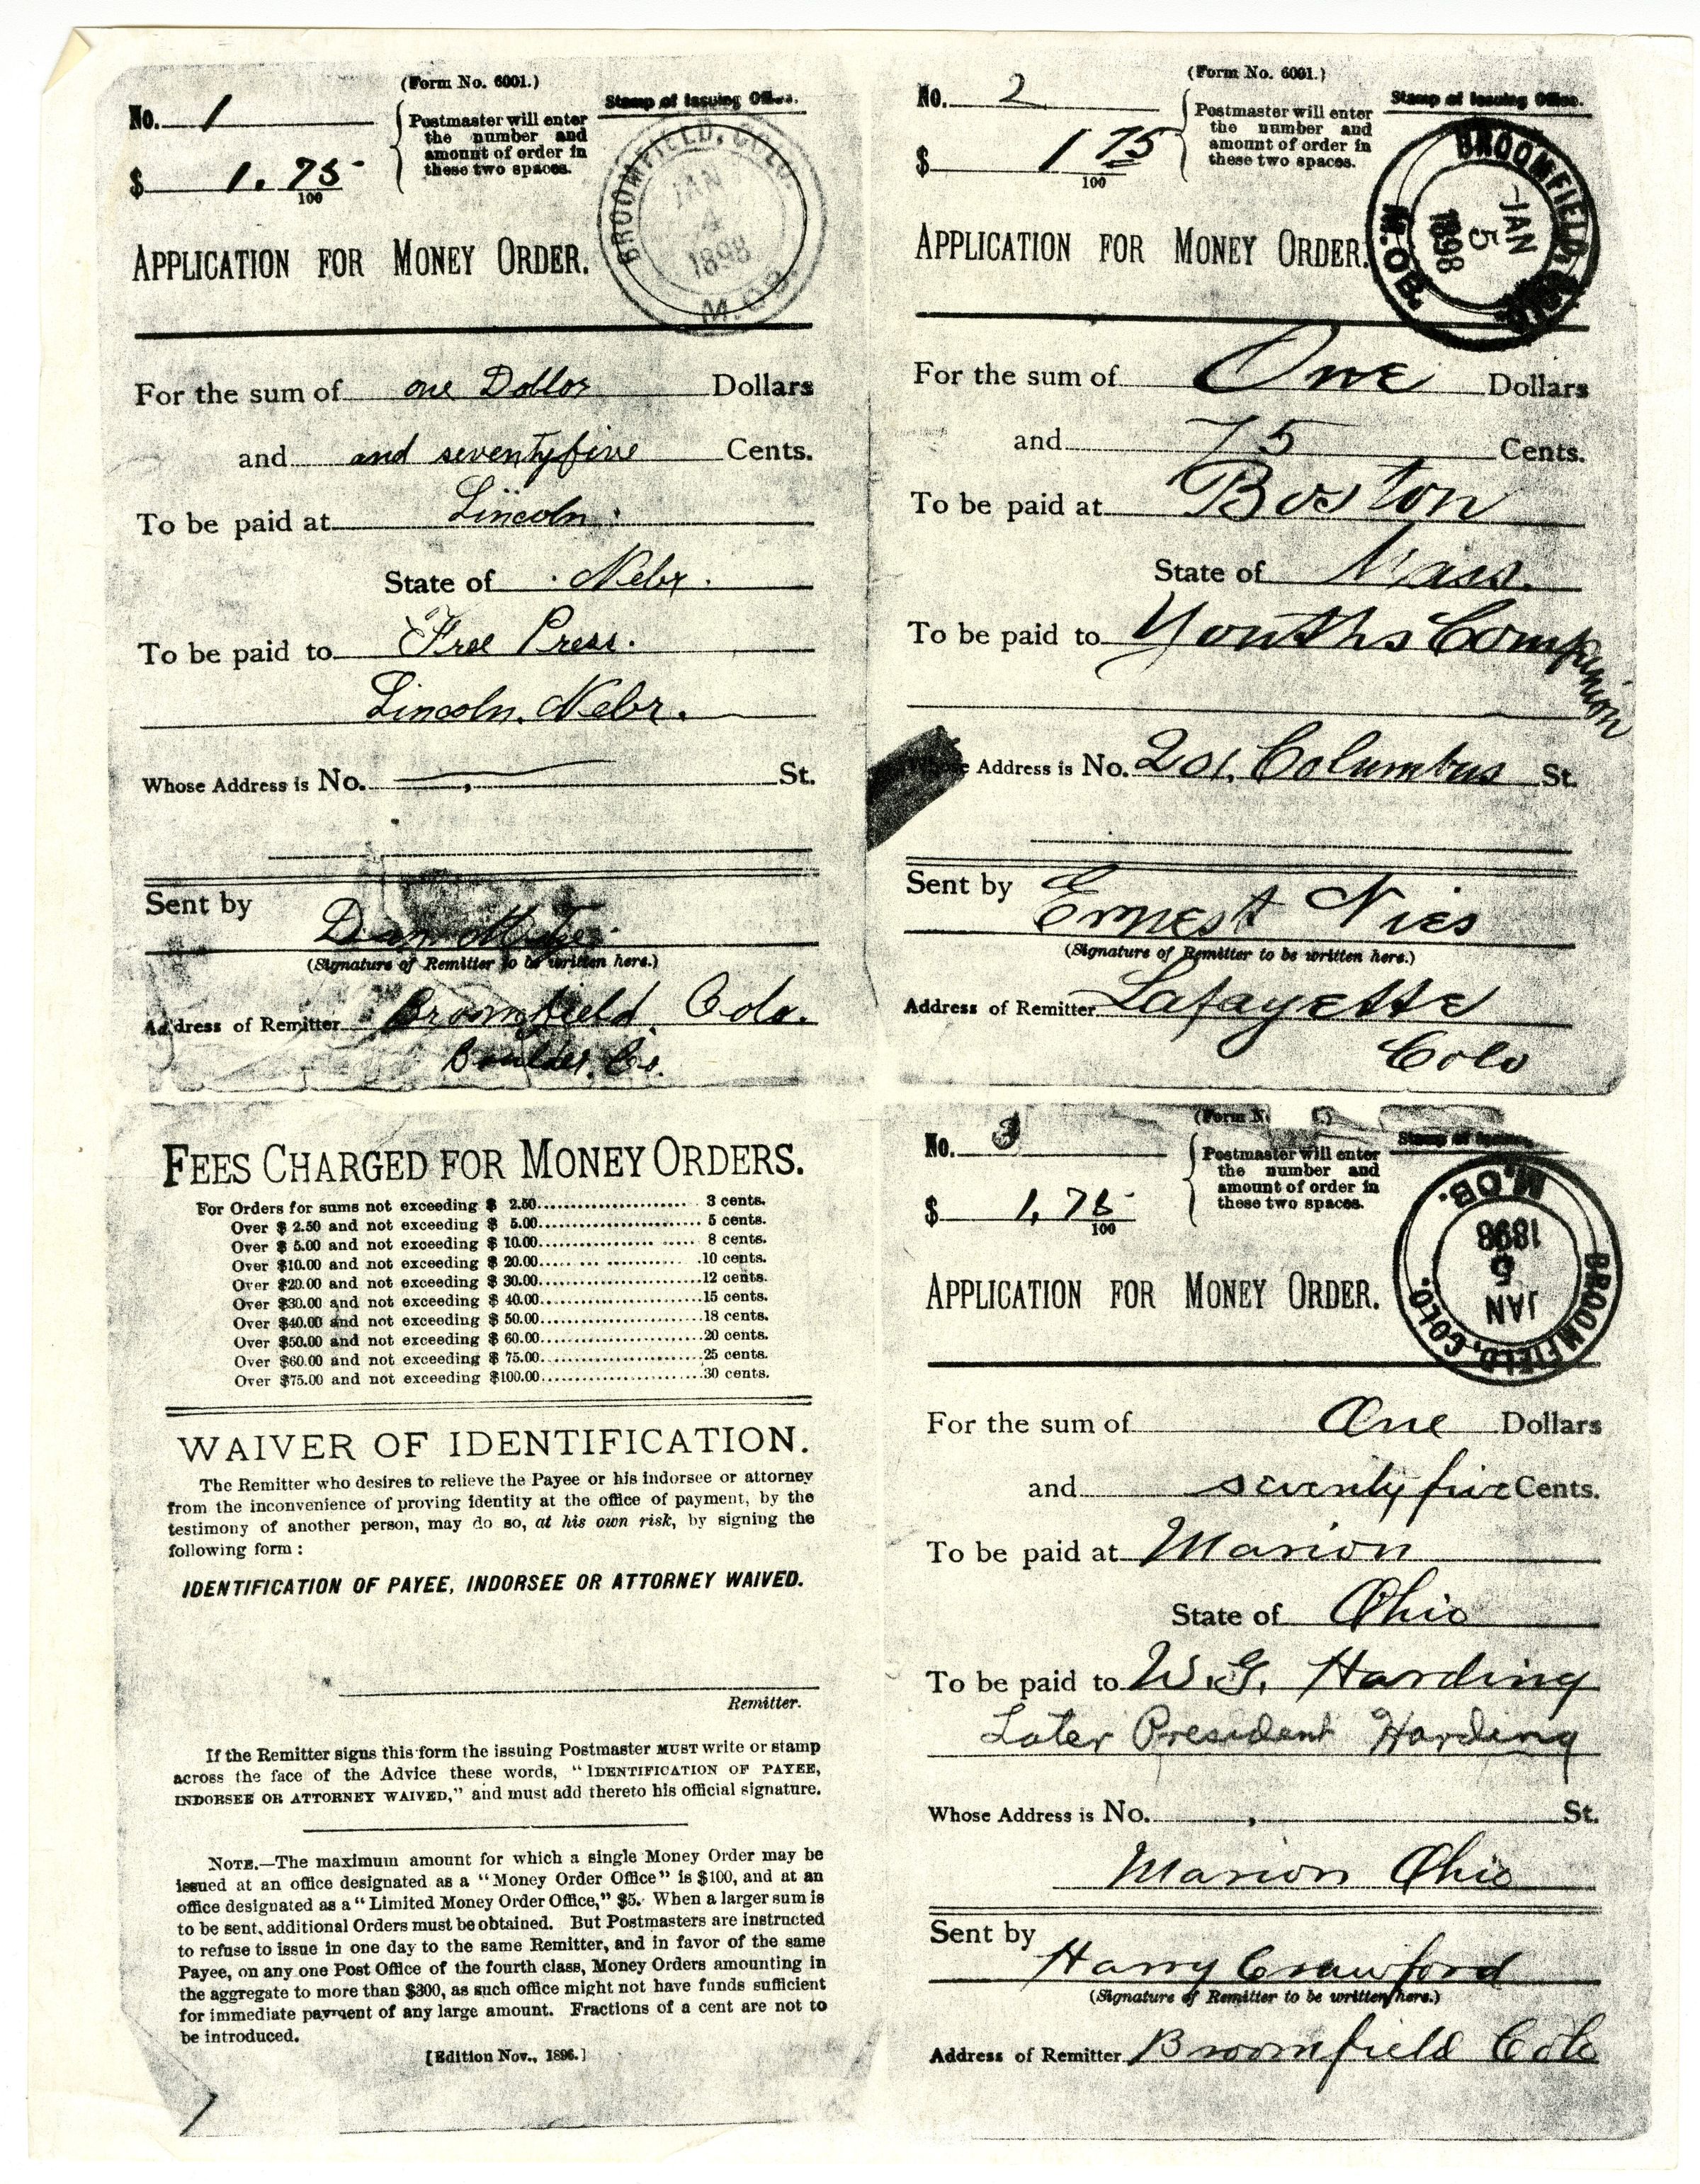 (Form No. 6001.)
No. 1
$ 1.75
100
Postmaster will enter
the number and
amount of order in
these two spaces.
Stamp of Issuing Office.
BROOMFIELD, COLO.
JAN
4
1898
M.O.B.
APPLICATION FOR MONEY ORDER.
For the sum of one Dollor Dollars
and and seventyfive Cents.
To be paid at Lincoln
State of Nebr.
To be paid to Free Press.
Lincoln, Nebr.
Whose Address is No. St.
Sent by Dan
(Signature of Remitter to be written here.)
Address of Remitter Broomfield, Colo.
Boulder, Co.
(Form No. 6001.)
No. 2
$ 1 75
100
Postmaster will enter
the number and
amount of order in
these two spaces.
Stamp of Issuing Office.
BROOMFIELD, COLO.
JAN
5
1898
M.O.B.
APPLICATION FOR MONEY ORDER.
For the sum of One Dollars
and 75 Cents.
To be paid at Boston
State of Mass.
To be paid to Youths Companion
Whose Address is No. 201. Columbus St.
Sent by Ernest Nies
(Signature of Remitter to be written here.)
Address of Remitter Lafayette
Colo
FEES CHARGED FOR MONEY ORDERS.
For Orders for sums not exceeding $ 2.50 3 cents.
Over $ 2.50 and not exceeding $ 5.00 5 cents.
Over $ 5.00 and not exceeding $ 10.00 8 cents.
Over $10.00 and not exceeding $ 20.00 10 cents.
Over $20.00 and not exceeding $ 30.00 12 cents.
Over $30.00 and not exceeding $ 40.00 15 cents.
Over $40.00 and not exceeding $ 50.00 18 cents.
Over $50.00 and not exceeding $ 60.00 20 cents.
Over $60.00 and not exceeding $ 75.00 25 cents.
Over $75.00 and not exceeding $100.00 30 cents.
WAIVER OF IDENTIFICATION.
The Remitter who desires to relieve the Payee or his indorsee or attorney
from the inconvenience of proving identity at the office of payment, by the
testimony of another person, may do so, at his own risk, by signing the
following form :
IDENTIFICATION OF PAYEE, INDORSEE OR ATTORNEY WAIVED.
Remitter.
If the Remitter signs this form the issuing Postmaster MUST write or stamp
across the face of the Advice these words, "IDENTIFICATION OF PAYEE,
INDORSEE OR ATTORNEY WAIVED," and must add thereto his official signature.
NOTE.—The maximum amount for which a single Money Order may be
issued at an office designated as a "Money Order Office" is $100, and at an
office designated as a "Limited Money Order Office," $5. When a larger sum is
to be sent, additional Orders must be obtained. But Postmasters are instructed
to refuse to issue in one day to the same Remitter, and in favor of the same
Payee, on any one Post Office of the fourth class, Money Orders amounting in
the aggregate to more than $300, as such office might not have funds sufficient
for immediate payment of any large amount. Fractions of a cent are not to
be introduced.
[Edition Nov., 1896.]
(Form N
No. 3
$ 1,75
100
Postmaster will enter
the number and
amount of order in
these two spaces.
Stamp of Issuing
BROOMFIELD, COLO.
JAN
5
1898
M.O.B.
APPLICATION FOR MONEY ORDER.
For the sum of One Dollars
and seventyfive Cents.
To be paid at Marion
State of Ohio
To be paid to W.G. Harding
Later President Harding
Whose Address is No. St.
Marion Ohio
Sent by Harry Crawford
(Signature of Remitter to be written here.)
Address of Remitter Broomfield Colo